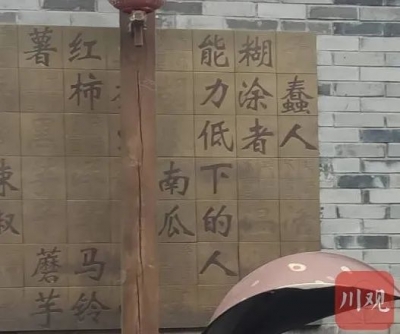 蠢人
糊涂者
能力低下的人
南瓜
红柿 马铃
薯 蘑芋
川观